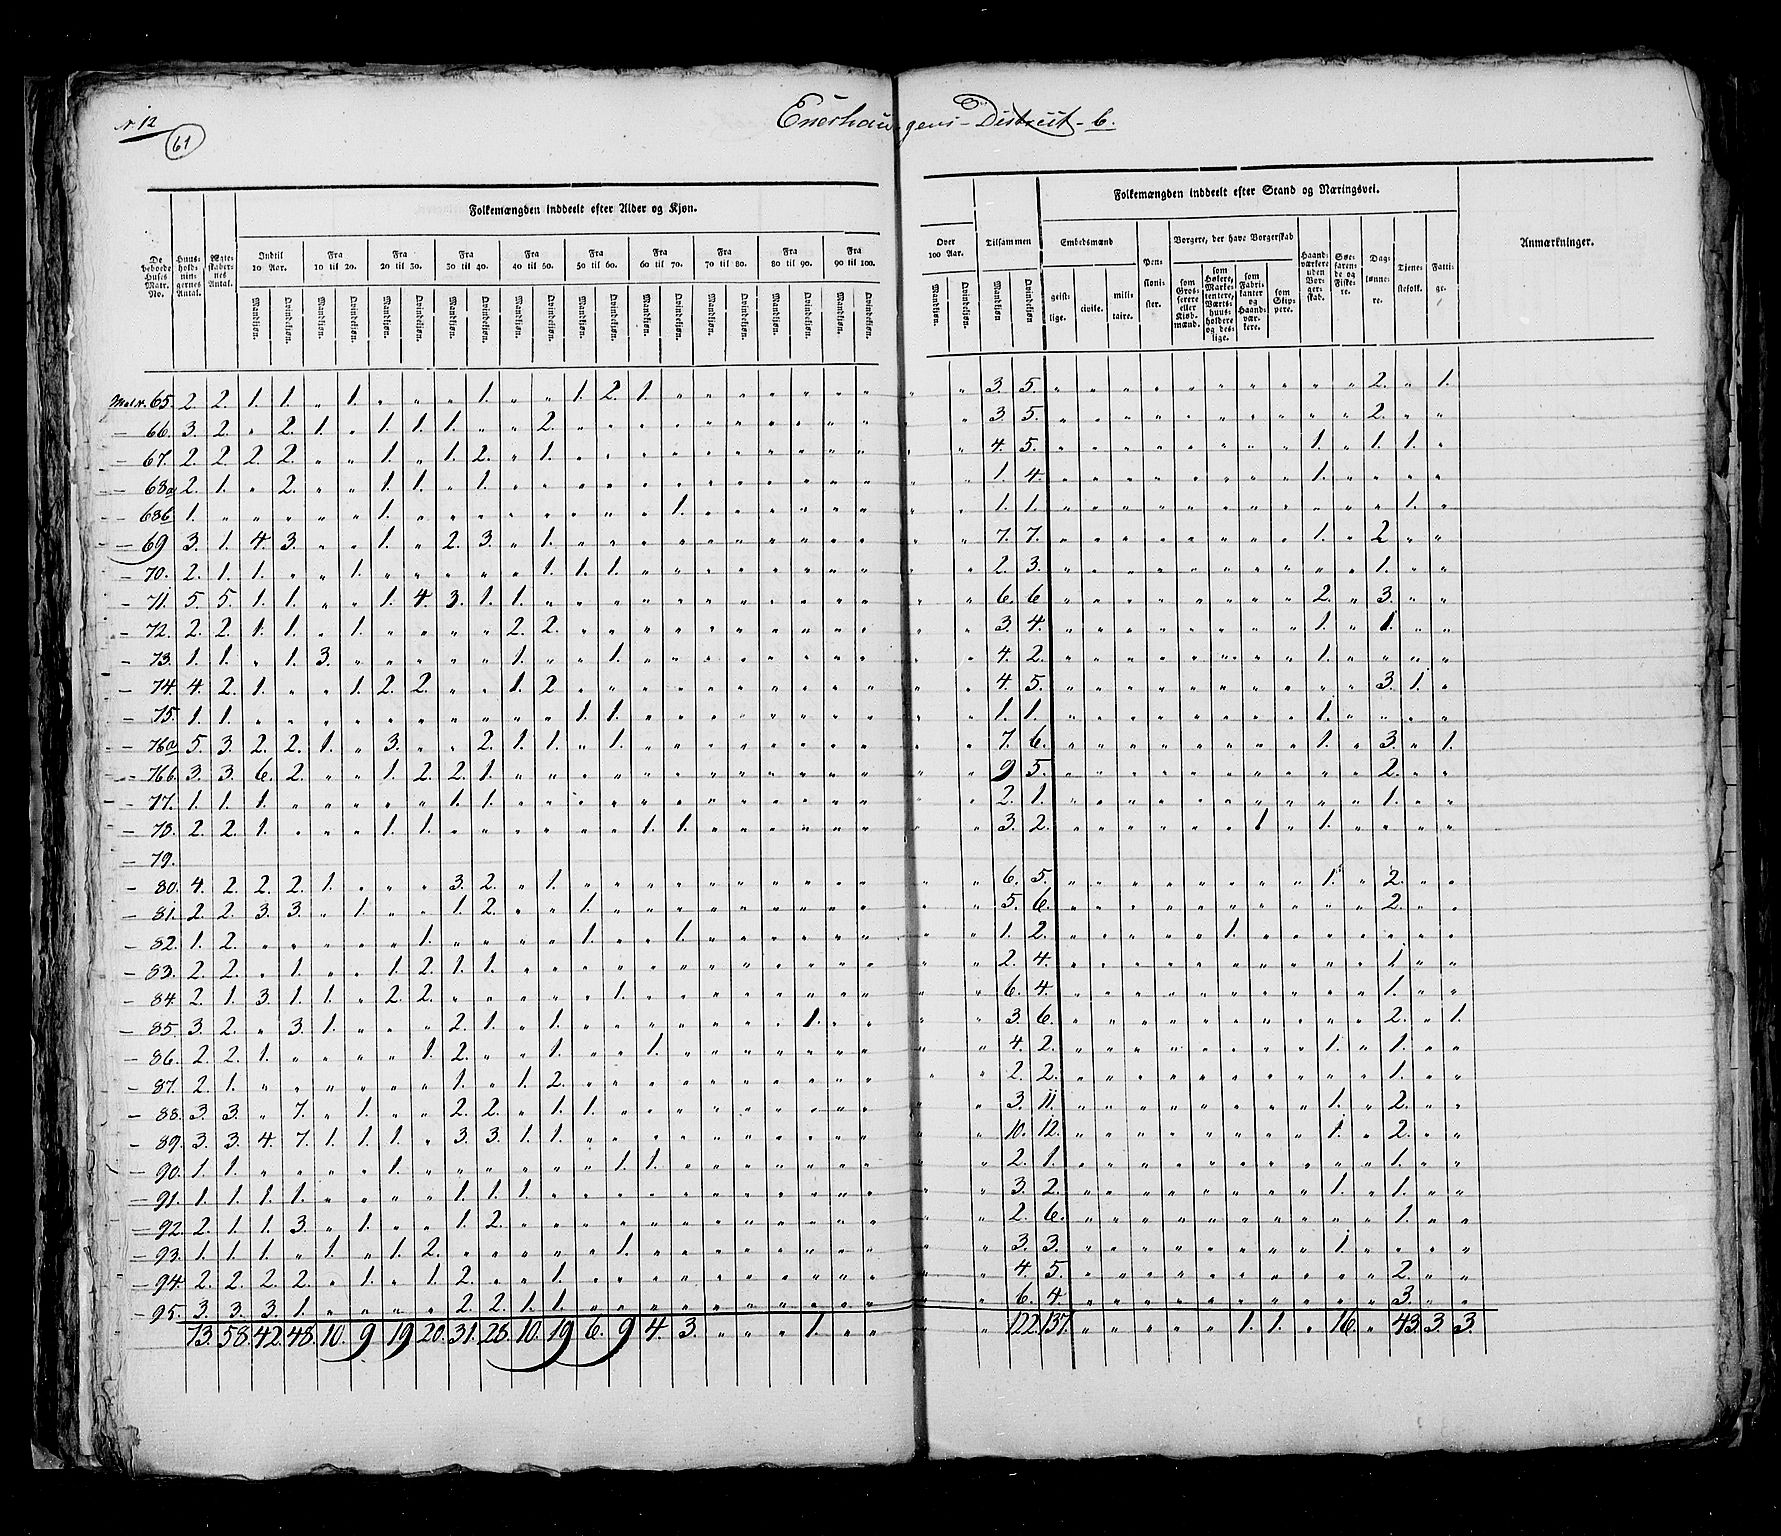 N. 12
61
Enerhaugens District 6.
Folkemængden inddeelt efter Alder og Kjøn.
Folkemængden inddeelt efter Stand og Næringsvei.
Anmærkninger.
De beboede Huses Matr. No.
Huusholdningernes Antal.
Ægteskabernes Antal.
Indtil 10 Aar.
Fra 10 til 20.
Fra 20 til 30.
Fra 30 til 40.
Fra 40 til 50.
Fra 50 til 60.
Fra 60 til 70.
Fra 70 til 80.
Fra 80 til 90.
Fra 90 til 100.
Over 100 Aar.
Tilsammen
Embedsmænd
geistlige. civile. militaire.
Pensionister.
Borgere, der have Borgerskab
som Grosserere eller Kjøbmænd.
som Høkere, Marketentere, Værtshuusholdere og deslige.
som Fabrikanter og Haandværkere.
som Skippere.
Haandværkere uden Borgerskab.
Søefarende og Fiskere.
Dagslønnere.
Tjenestefolk.
Fattige.
Mandkjøn. Qvindekjøn.
Mat. N. 65. 2. 2. 1. 1. " 1. " " " 1. " " 1. 2. 1. " " " " " " " " " 3. 5. " " " " " " " " " " 2. " 1.
66. 3. 2. " 2. 1. " 1. 1. 1. " " 2. " " " " " " " " " " " 3. 5. " " " " " " " " " " 2. " "
67. 2. 2. 2. 2. " " 1. " 1. 2. " 1. " " " " " " " " " " " " 4. 5. " " " " " " " " 1. " 1. 1. "
68a 2. 1. " 2. " " 1. 1. " 1. " " " " " " " " " " " " " " 1. 4. " " " " " " " " 1. " " " "
68b 1. " " " " " 1. " " " " " " " " 1. " " " " " " " " 1. 1. " " " " " " " " " " " 1. "
69 3. 1. 4. 3. " " 1. " 2. 3. " 1. " " " " " " " " " " " " 7. 7. " " " " " " " " 1. " 2 " "
70. 2. 1. 1. " " 1. " " " " " 1. 1. 1. " " " " " " " " " " 2. 3. " " " " " " " " " " 1. " "
71. 5. 5. 1. 1. " " 1. 4. 3. 1. 1. " " " " " " " " " " " " " 6. 6 " " " " " " " " 2. " 3. " "
72. 2. 2. 1. 1. " 1. " " " " 2. 2. " " " " " " " " " " " " 3. 4. " " " " " " " " 1. " 1. " "
73. 1. 1. " 1. 3. " " " " " 1. " " 1. " " " " " " " " " " 4. 2. " " " " " " " " 1. " " " "
74. 4. 2. 1. " " 1. 2. 2. " " 1. 2. " " " " " " " " " " " " 4. 5. " " " " " " " " " " 3. 1. "
75. 1. 1. " " " " " " " " " " 1. 1. " " " " " " " " " " 1. 1. " " " " " " " " 1. " " " "
76a 5. 3. 2. 2. 1. " 3. " " 2. 1. 1. " 1. " " " " " " " " " " 7. 6. " " " " " " " " 1. " 3. " 1.
76b. 3. 3. 6. 2. " " 1. 2. 2. 1. " " " " " " " " " " " " " " 9 5. " " " " " " " " " " 2. " "
77. 1. 1. 1. " " " " " 1. 1. " " " " " " " " " " " " " " 2. 1. " " " " " " " " " " 1. " "
78. 2. 2. 1. " " " 1. 1. " " " " " " 1. 1. " " " " " " " " 3. 2. " " " " " " 1 " 1. " " " "
79.
80. 4. 2. 2. 2. 1. " " " 3. 2. " 1. " " " " " " " " " " " " 6. 5. " " " " " " " " 1. " 2. " "
81. 2. 2. 3. 3. " 1. " " 1. 2. " " 1. " " " " " " " " " " " 5. 6. " " " " " " " " " " 2. " "
82. 1. 2. " " " " " 1. " " " " 1. " " 1. " " " " " " " " 1. 2. " " " " " 1. " " " " " " "
83. 2. 2. " 1. " " 1. 2. 1. 1. " " " " " " " " " " " " " " 2. 4. " " " " " " " " " " 1. " "
84. 2. 1. 3. 1. 1. " 2. 2. " " " " " 1. " " " " " " " " " " 6. 4. " " " " " " " " " " 1. " "
85. 3. 2. " 3. 1. " " " 2. 1. " 1. " " " " " " " 1. " " " " 3. 6. " " " " " " " " " " 2. " 1.
86. 2. 2. 1. " " " " 1. 2. " " 1. " " 1. " " " " " " " " " 4. 2. " " " " " " " " 1. " 1. " "
87. 2. 1. " " " " " " 1. " 1. 2. " " " " " " " " " " " " 2. 2. " " " " " " " " " " 1. " "
88. 3. 3. " 7. " 1. " " 2. 2. " 1. 1. " " " " " " " " " " " 3. 11. " " " " " " " " 1. " 2. " "
89. 3. 3. 4. 7. 1. 1. 1. " 3. 3. 1. 1. " " " " " " " " " " " " 10. 12. " " " " " " " " 1. " 2. " "
90. 1. 1. " " " " 1. " " " " " " 1. 1. " " " " " " " " " 2. 1. " " " " " " " " " " 1. " "
91. 1. 1. 1. 1. " " " " 1. 1. 1. " " " " " " " " " " " " " 3. 2. " " " " " " " " 1. " 1. " "
92. 2. 1. 1. 3. " 1. " " 1. 2. " " " " " " " " " " " " " " 2. 6. " " " " " " " " " " 1. " "
93. 1. 1. 1. " 1. " 1. 2. " " " " " 1. " " " " " " " " " " 3. 3. " " " " " " " " 1. " " " "
94. 2. 2. 2. 2. " 1. " 1. 2. " " 1. " " " " " " " " " " " " 4. 5. " " " " " " " " " " 2. " "
95. 3. 3. 3. 1. " " " " 2. 2. 1. 1. " " " " " " " " " " " " 6. 4. " " " " " " " " " " 3. " "
73. 58. 42. 48. 10. 9 19 20. 31. 28. 10. 19 6. 9 4. 3. " " " 1. " " " " 122. 137. " " " " " 1. 1. " 16. " 43. 3. 3.